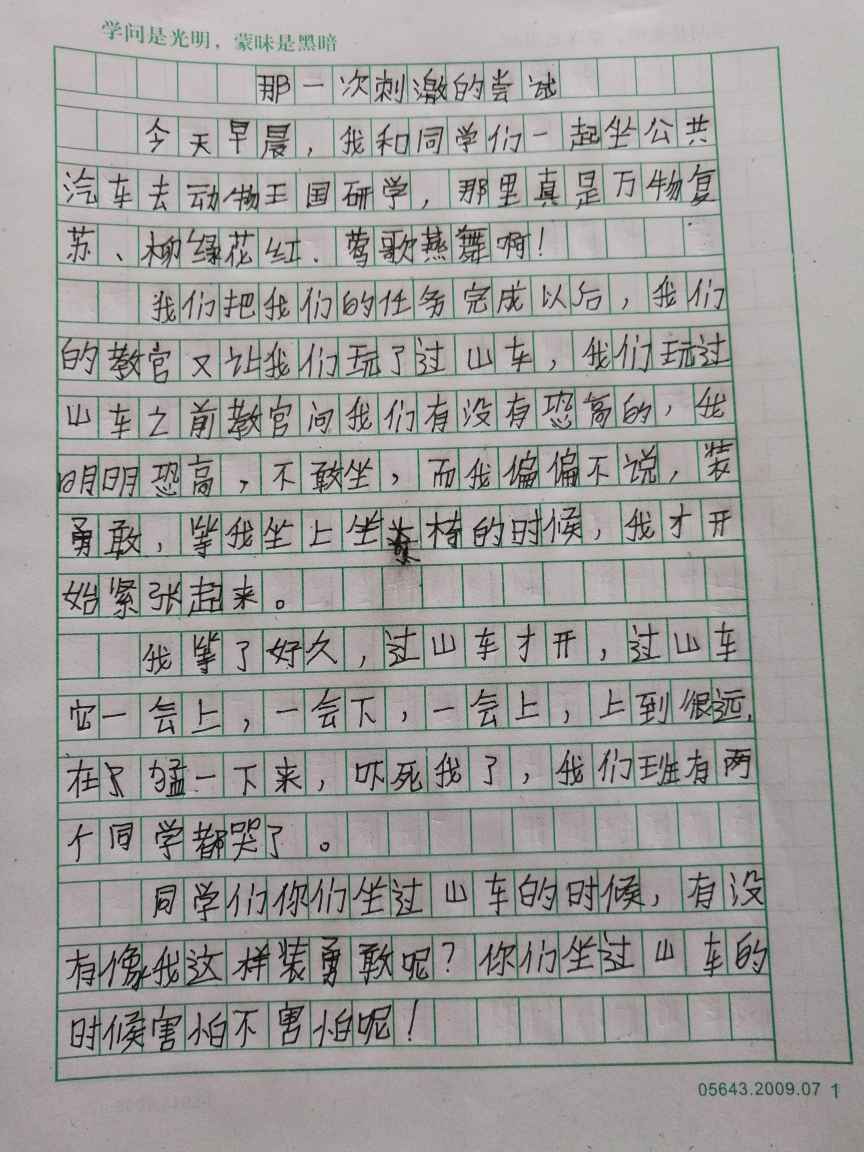 学问是光明，蒙昧是黑暗
那一次刺激的尝试
今天早晨，我和同学们一起坐公共
汽车去动物王国研学，那里真是万物复
苏、柳绿花红、莺歌燕舞啊！
我们把我们的任务完成以后，我们
的教官又让我们玩了过山车，我们玩过
山车之前教官问我们有没有恐高的，我
明明恐高，不敢坐，而我偏偏不说，装
勇敢，等我坐上坐椅的时候，我才开
始紧张起来。
我等了好久，过山车才开，过山车
它一会上，一会下，一会上，上到很远，
在猛一下来，吓死我了，我们班有两
个同学都哭了。
同学们你们坐过山车的时候，有没
有像我这样装勇敢呢？你们坐过山车的
时候害怕不害怕呢！
05643.2009.07 1